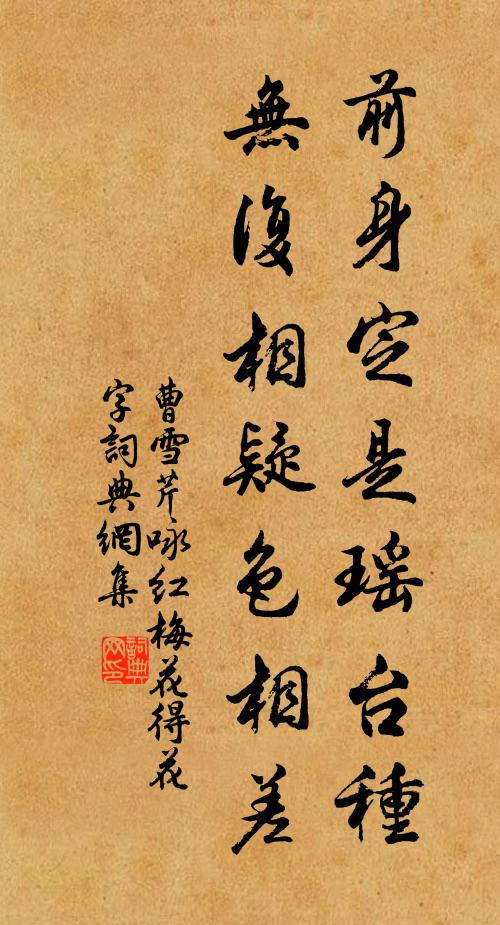 前身定是瑶台種
無復相疑色相差
曹雪芹咏红梅花得花
字詞典網集
詞典网印